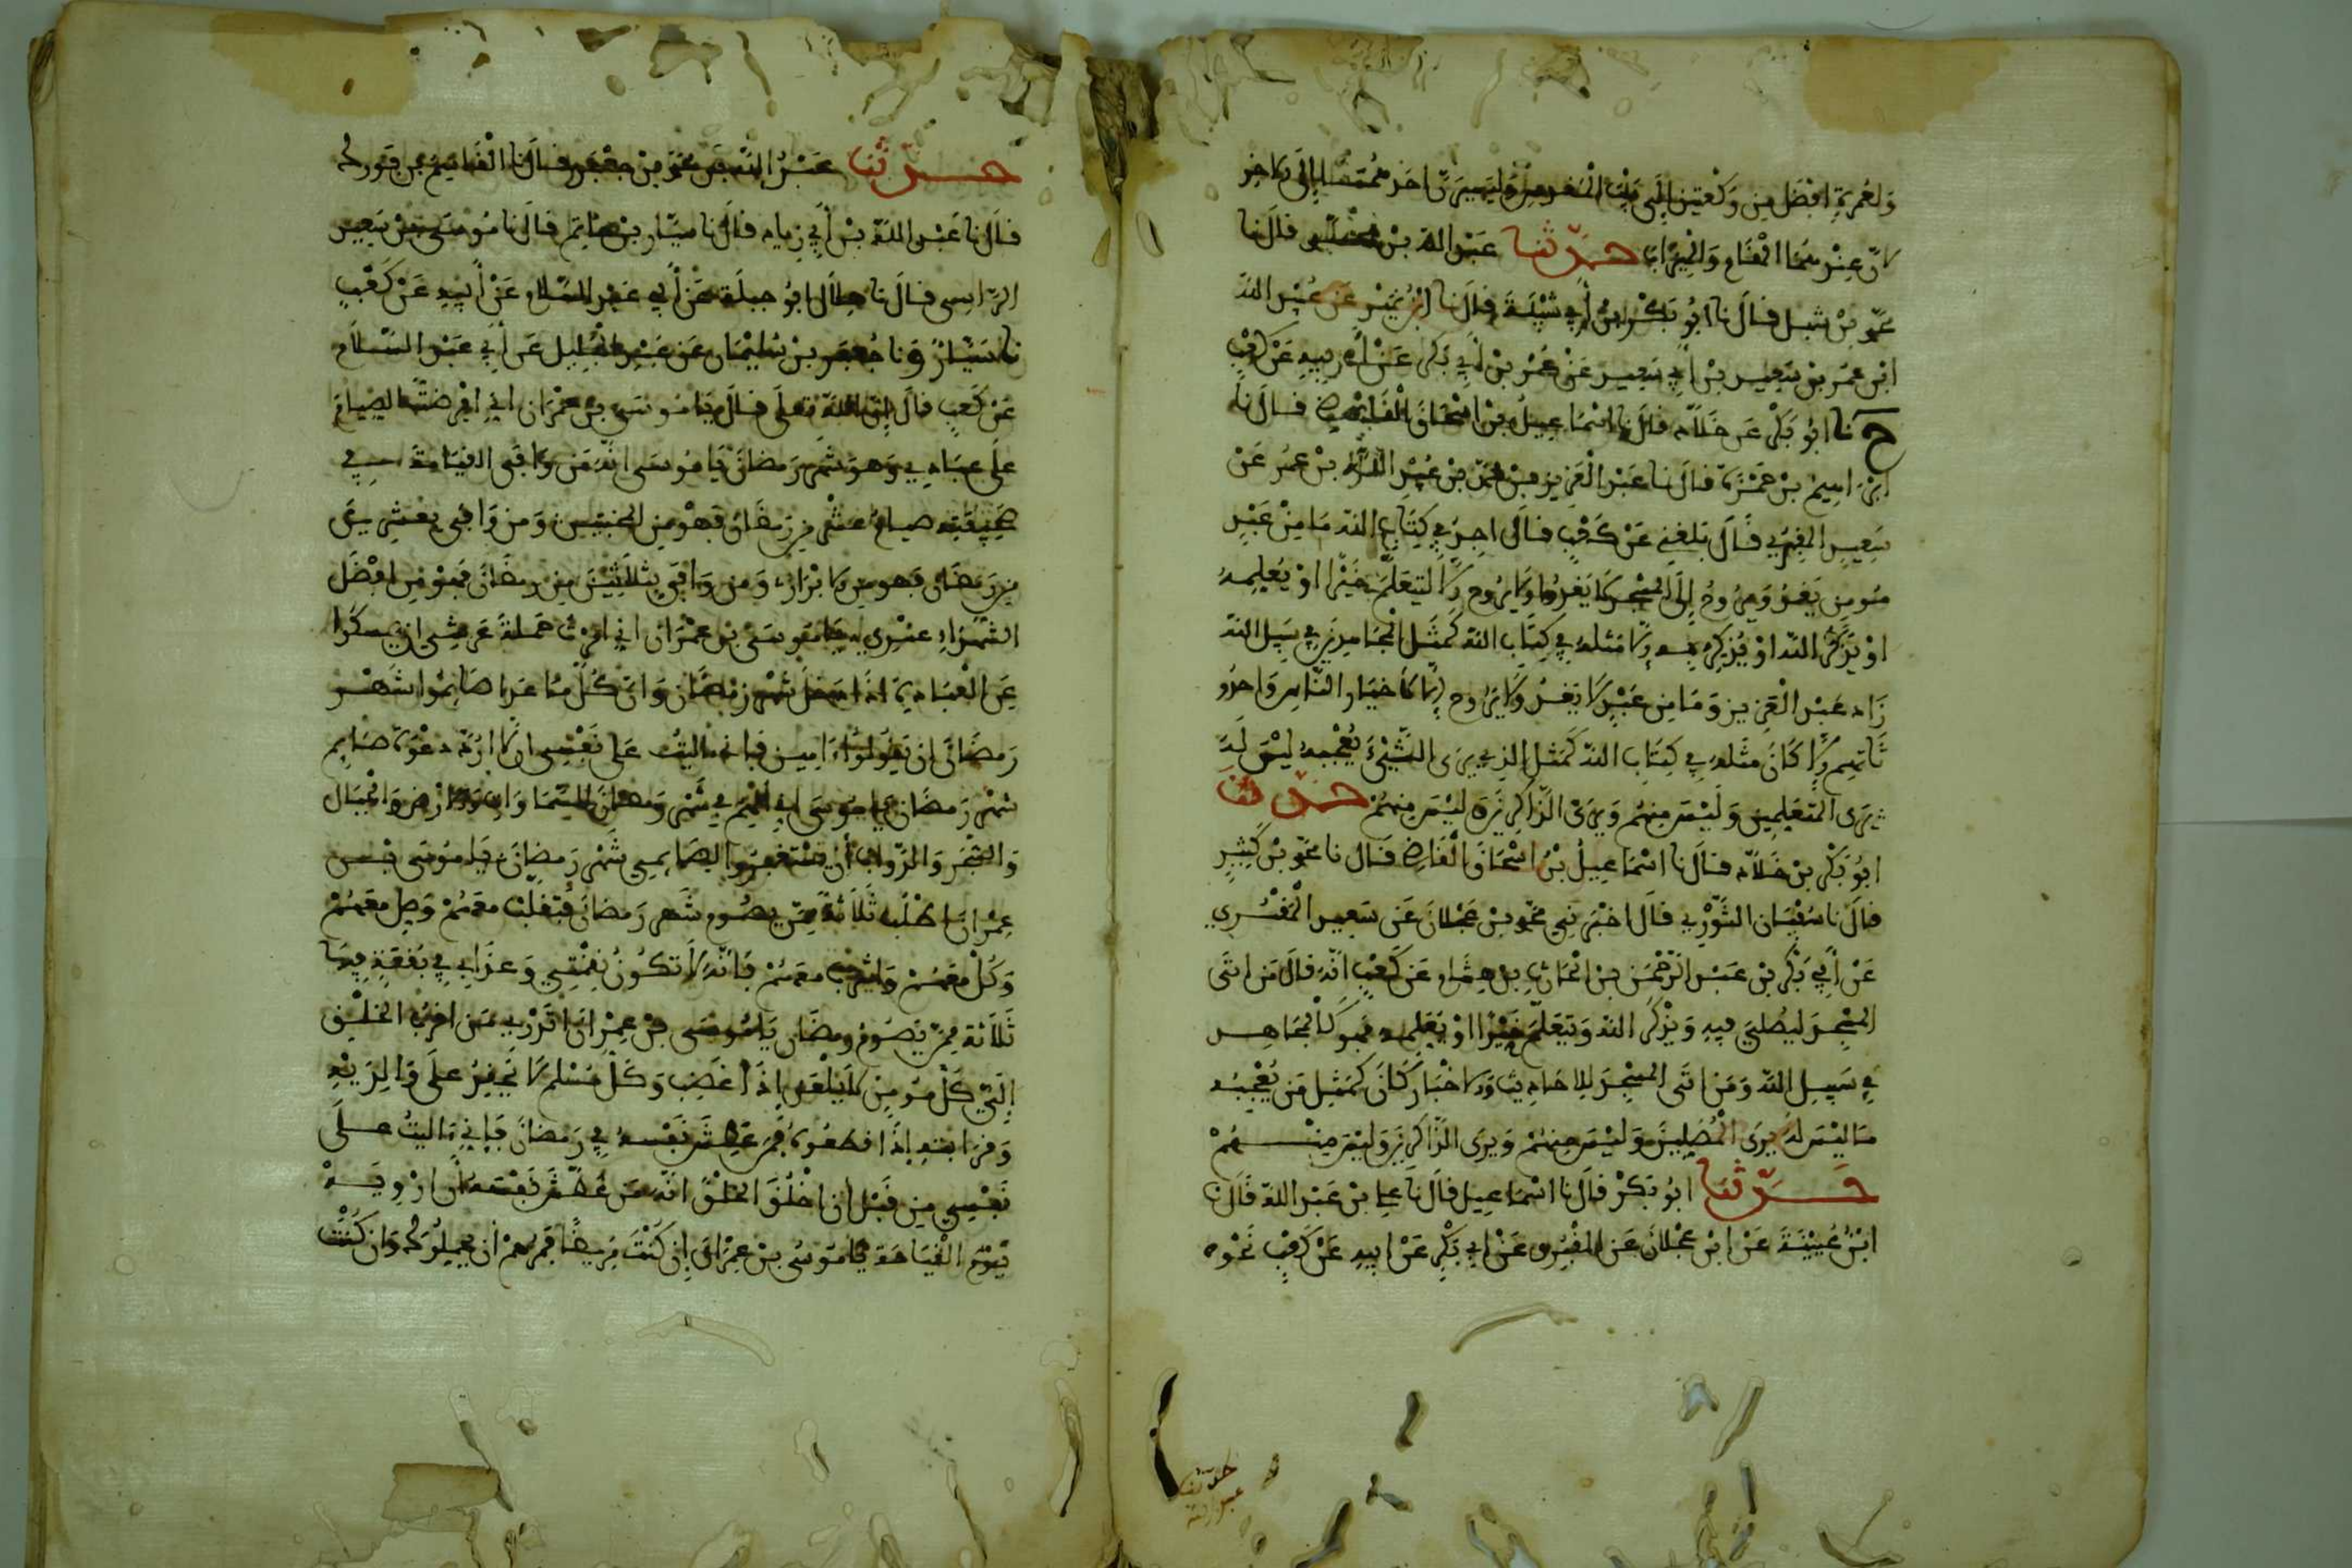 ولعمرة افضل من ركعتين الى بيت المقدس وليسيرن احد محتملا الى الاخر
لان عندهما المقام والميزاب حدثنا عبد الله بن محمد قال نا
محمد بن شبل قال نا ابو بكر بن أبي شيبة قال نا ابن نمير عن عبيد الله
ابن عمر بن سعيد بن أبي سعيد عن عمر بن أبي بكر عن أبيه عن كعب
ح نا ابو بكر بن خلاد قال نا اسماعيل بن اسحاق القاضي قال نا
ابراهيم بن حمزة قال نا عبد العزيز بن محمد عن عبيد الله بن عمر عن
سعيد المقبري قال بلغني عن كعب قال اجد في كتاب الله ما من عبد
مومن يغدو ويروح إلى المسجد لا يغدو ولا يروح إلا ليتعلم خيرا او يعلمه
او يذكر الله او يذكر به إلا مثله في كتاب الله كمثل المجاهد في سبيل الله
زاد عبد العزيز وما من عبد لا يغدو ولا يروح إلا لأخبار الناس واحدو
ثاتهم إلا كان مثله في كتاب الله كمثل الذي يرى الشيء يعجبه ليس له
يرى المتعلمين وليس منهم ويرى الذاكرين وليس منهم حدثنا
ابو بكر بن خلاد قال نا اسماعيل بن اسحاق القاضي قال نا محمد بن كثير
قال نا سفيان الثوري قال اخبرني محمد بن عجلان عن سعيد المقبري
عن أبي بكر بن عبد الرحمن بن الحارث بن هشام عن كعب انه قال من اتى
المسجد ليصلي فيه ويذكر الله ويتعلم خيرا او يعلمه فهو كالمجاهد
في سبيل الله ومن اتى المسجد للاحاديث والاخبار كان كمثل من يعجبه
ما ليس له يرى المصلين وليس منهم ويرى الذاكرين وليس منهم
حدثنا ابو بكر قال نا اسماعيل قال نا علي بن عبد الله قال نا
ابن عيينة عن ابن عجلان عن المقبري عن ابي بكر عن ابيه عن كعب نحوه
حدثنا
عبد الله
حدثنا عبد الله بن محمد بن جعفر قال نا القاسم بن فورك
قال نا عبد الله بن أبي زياد قال نا سيار بن حاتم قال نا موسى بن سعيد
الراسي قال نا هلال ابو جبلة عن أبي عبد السلام عن أبيه عن كعب
نا سيار ونا جعفر بن سليمان عن عبد الجليل عن أبي عبد السلام
عن كعب قال إن الله تعلى قال يا موسى بن عمران اني افرضت الصيام
على عبادي وهو شهر رمضان يا موسى انه من وافى القيامة في
صحيفته صيام عشر من رمضان فهو من المخبتين ومن وافى بعشرين
من رمضان فهو من الابرار ومن وافى بثلاثين من رمضان فهو من افضل
الشهداء عندي يا موسى بن عمران اني امرت حملة عرشي ان يمسكوا
عن العبادة اذا دخل شهر رمضان وان كل ما عدا صائموا شهر
رمضان ان يقولوا ءامين فاني ءاليت على نفسي ان لا ارد دعوة صايم
شهر رمضان يا موسى اني ألهم في شهر رمضان السماوات والارض والجبال
والشجر والدواب أن يستغفروا لصايمي شهر رمضان يا موسى بن
عمران اطلب ثلاثة ممن يصوم شهر رمضان فتقلب معهم وصل معهم
وكل معهم واشرب معهم فانه لا تكون نقمتي وعذابي في بقعة فيها
ثلاثة ممن يصوم رمضان يا موسى بن عمران اقرب من اقرب الخلق
إلي كل مومن لا يلعن إذا غضب وكل مسلم لا يحقر على والديه
وقرابته إذا قطعوه فمن عطش نفسه في رمضان فإني ءاليت على
نفسي من قبل أن اخلق الخلق انه من عطش نفسه أن ارويه
يوم القيامة يا موسى بن عمران إن كنت مريضا فمرهم أن يحملوك وان كنت